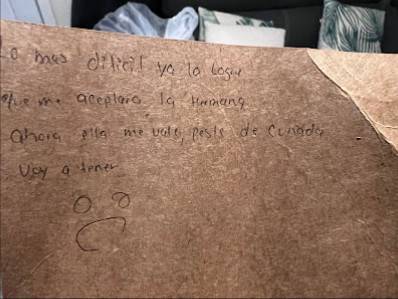 Lo mas dificil ya lo logre
que me aceptara la hermana
ahora ella me vale, peste de Cuñada
Voy a tener